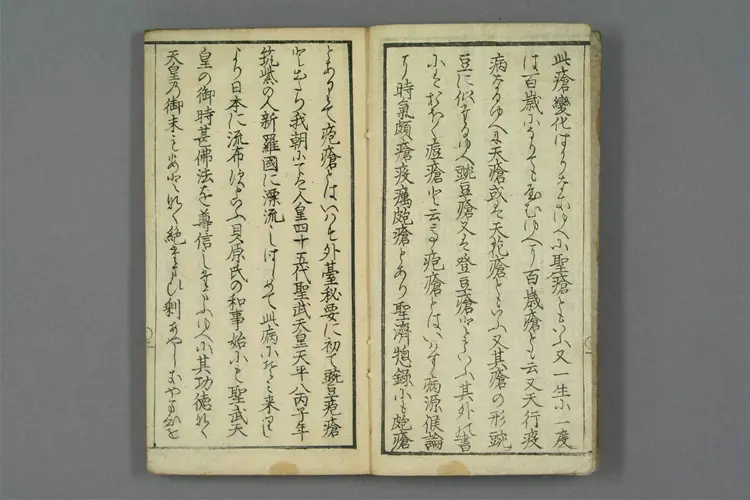 此瘡變化はかりなきゆへに聖瘡ともいふ又一生に一度
は百歳になりても病むゆへに百歳瘡とも云又天行疫
病なるゆへに天瘡或は天花瘡ともいふ又其瘡の形豌
豆に似たるゆへ豌豆瘡又は登豆瘡ともいふ其外の書
にもおほく痘瘡と云て疱瘡とはいはす病源候論
に時氣皰瘡疫癘皰瘡とあり聖濟惣録にも皰瘡
とありて疱瘡とはいはす外臺秘要に初て豌豆疱瘡
と出たり我朝にては人皇四十五代聖武天皇天平八丙子年
筑紫の人新羅國に漂流しはしめて此病にそみ来りし
より日本に流布すといふ貝原氏の和事始にも聖武天
皇の御時甚佛法を尊信し玉ふゆへに其功徳なく
天皇乃御末もなく絶玉ひ剰あやしき